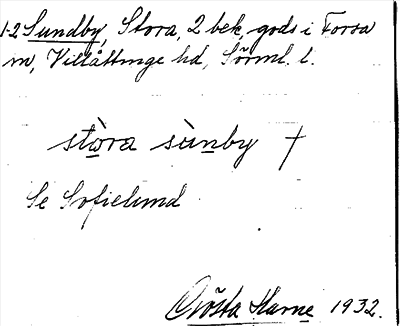 1-2 Sundby, Stora, 2 bek. gods i Forsa
sn, Villåttinge hd, Sörml. l.
stòra sùnby †
Se Sofielund
Gösta Harne 1932.